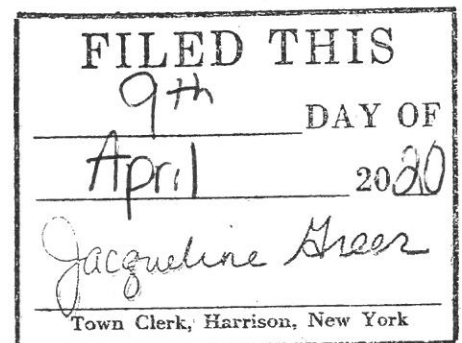 FILED THIS
9th DAY OF
April 2020
Jacqueline Greer
Town Clerk, Harrison, New York